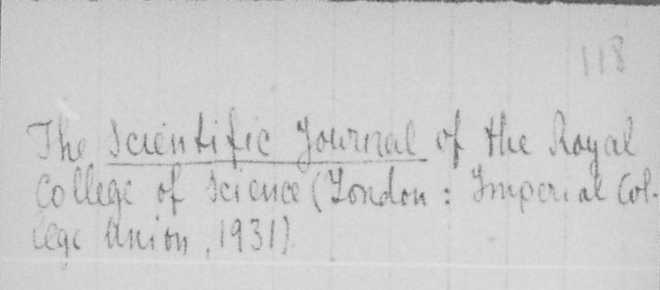 118
The Scientific Journal of the Royal
College of Science (London : Imperial Col-
lege Union, 1931)